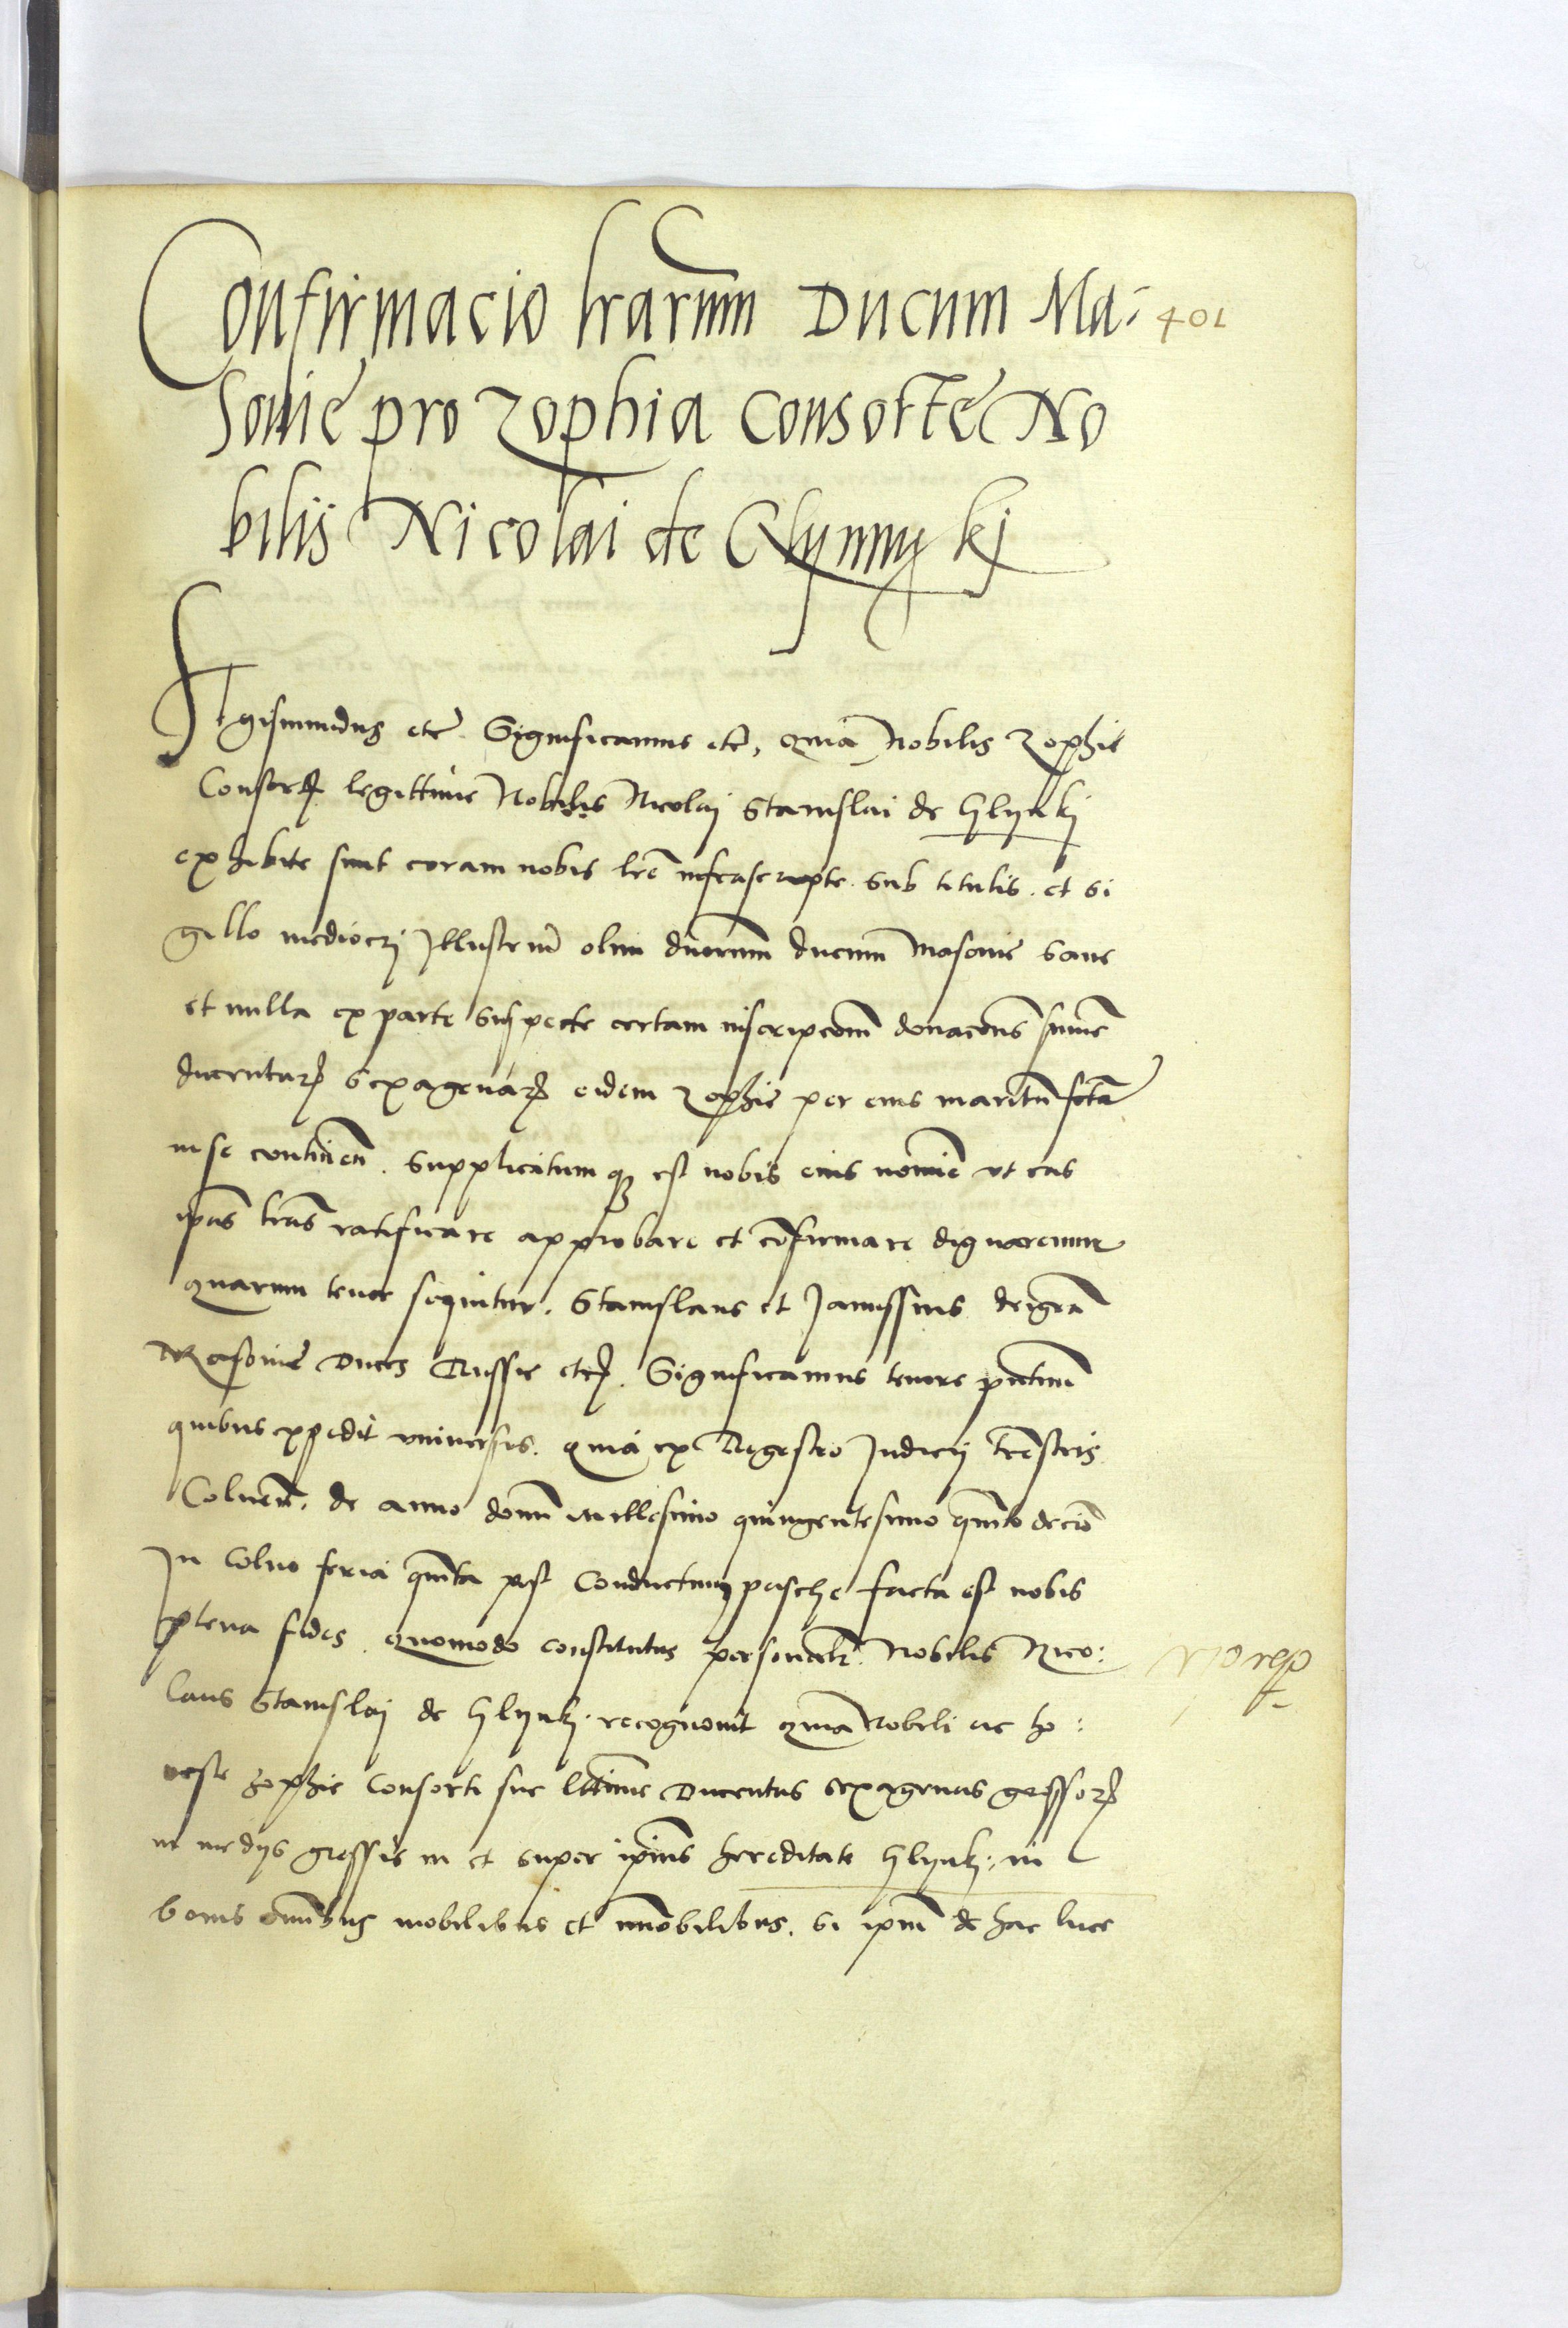 Confirmacio lrarum Ducum Ma-
401
sovie pro Zophia Consorte No
bilis Nicolai de Glynnykj
Sigismundus etc. Significamus etc, quia Nobilis Zophie
Consortis legittime Nobilis Nicolaj Stanislai de Hlynkj
exhibite sunt coram nobis lre infrascripte. sub titulis. et si
gillo mediocrj Jllustrium olim dnorum ducum Masovie sane
et nulla ex parte suspecte certam inscripcionem donacionis summe
ducentarum sexagenarum eidem Zophie per eius maritum factam
in se continen. Supplicatumque est nobis eius nomine ut eas
ipsas lras ratificare approbare et confirmare dignaremur
quarum tenor sequitur. Stanislaus et Janussius dei gra
Masovie Duces Russie etc. Significamus tenore pntium
quibus expedit vniversis. quia ex Regestro Judicij Trestris
Colnen. de anno domini millesimo quingentesimo quinto decimo
Jn Colno feria quinta post Conductum pasche facta est nobis
plena fides. quomodo constitutus personalr. Nobilis Nico:
laus Stanislaj de Hlynkj. recognovit quia Nobili ac ho:
neste Zophie Consorti sue lttime Ducentas sexagenas grossorum
in medijs grossis in et super ipsius hereditate Hlynkj: in
bonis omnibus mobilibus et immobilibus. si ipsum de hac luce